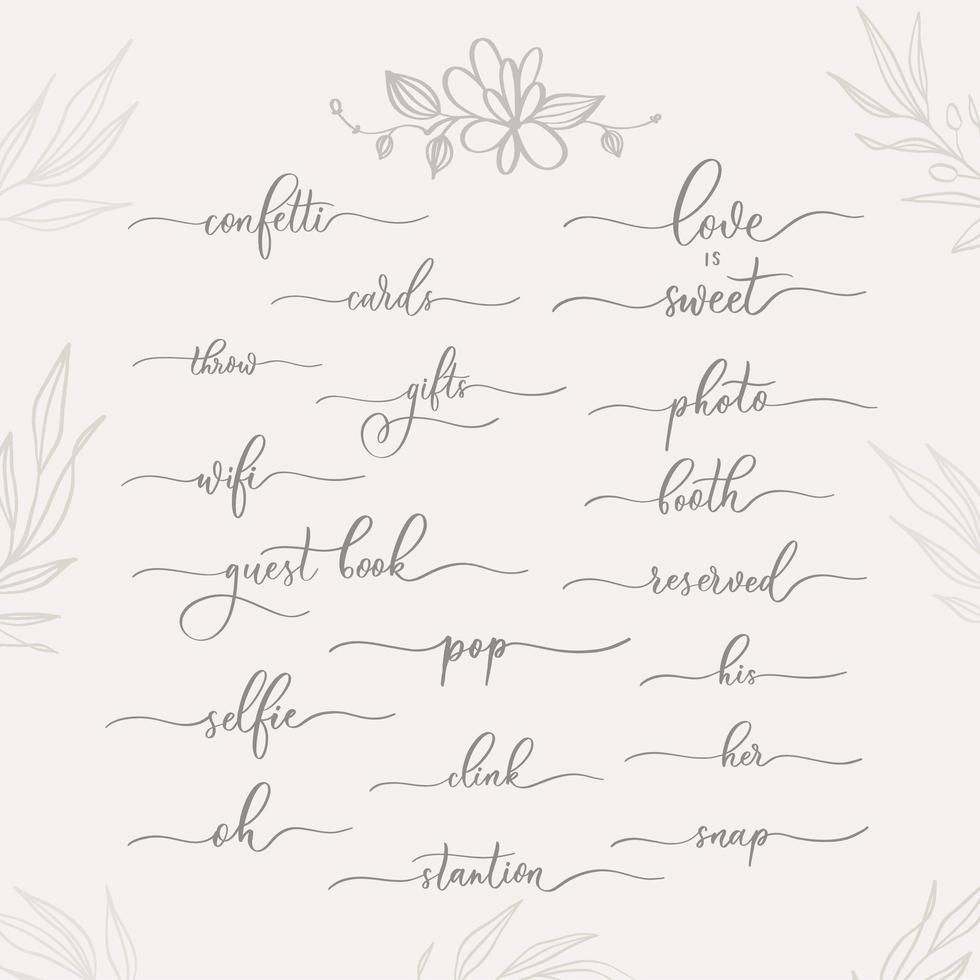 confetti
love
IS
sweet
cards
throw
gifts
photo
wifi
booth
guest book
reserved
pop
his
selfie
her
clink
oh
snap
stantion